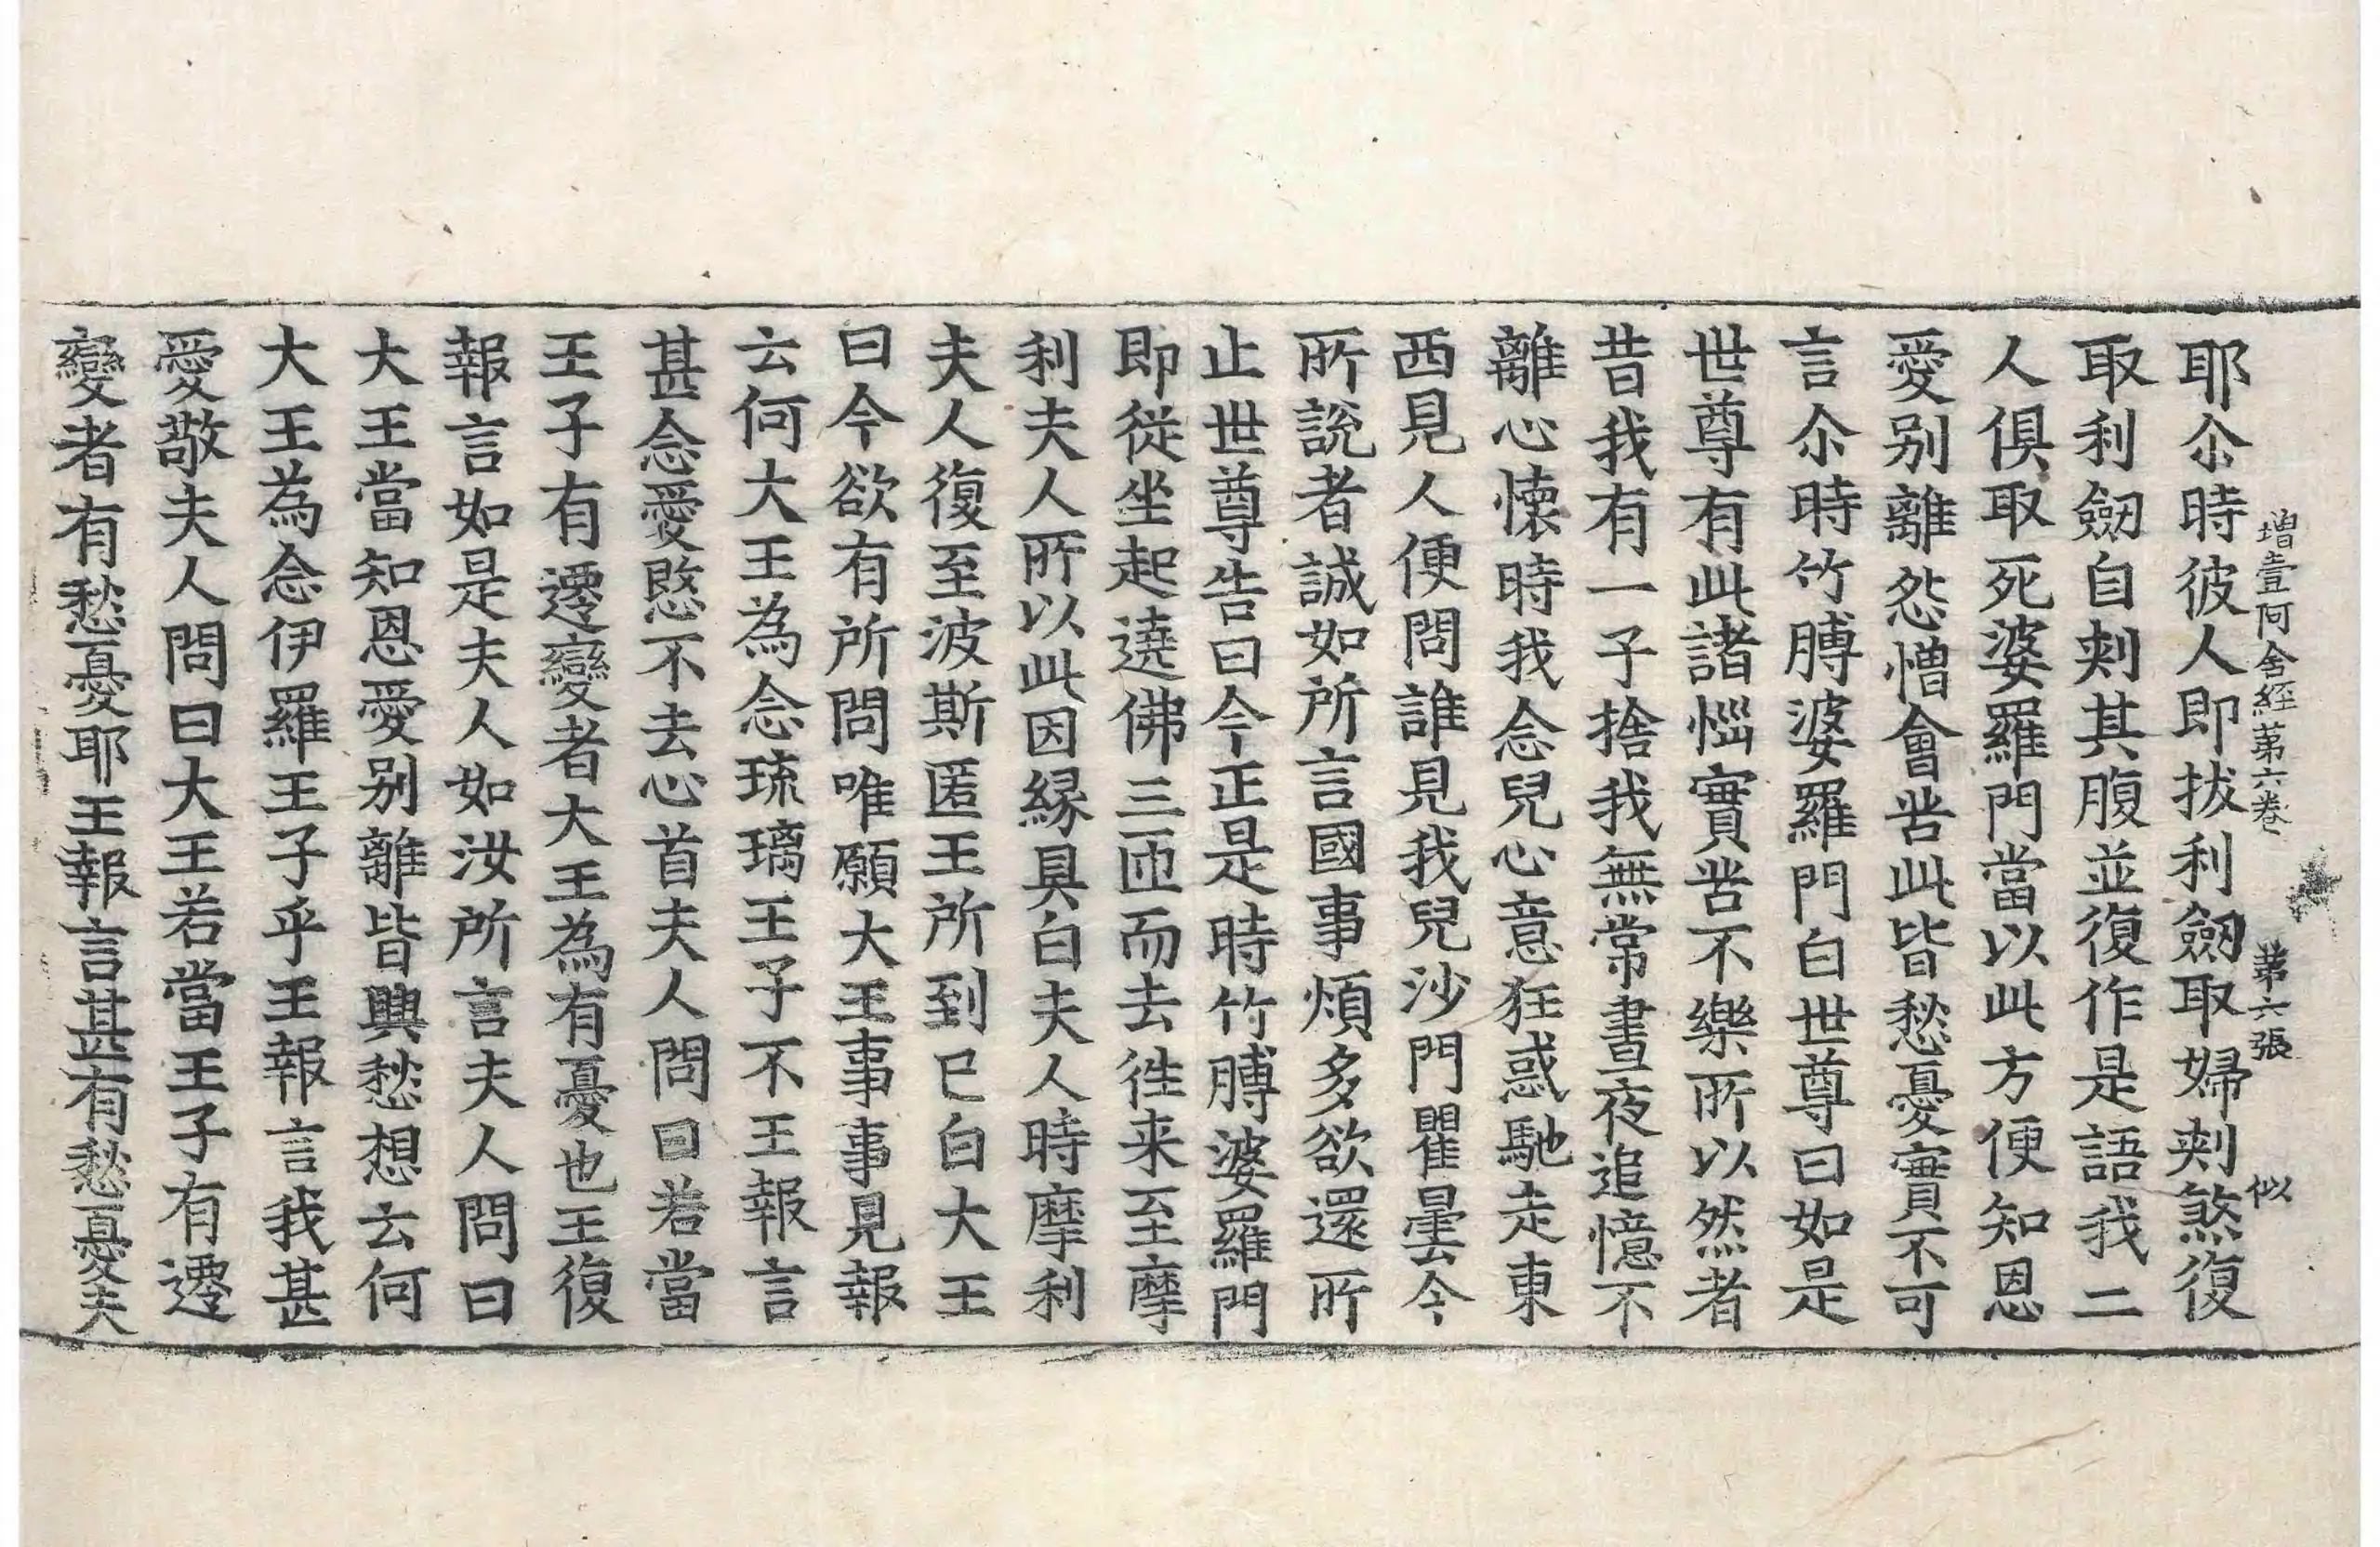 增壹阿含經第六卷 第六張 似
耶尒時彼人即拔利劒取婦刾煞復
取利劒自刾其腹並復作是語我二
人俱取死婆羅門當以此方便知恩
愛别離怨憎會苦此皆愁憂實不可
言尒時竹膊婆羅門白世尊曰如是
世尊有此諸惱實苦不樂所以然者
昔我有一子捨我無常晝夜追憶不
離心懷時我念兒心意狂惑馳走東
西見人便問誰見我兒沙門瞿曇今
所說者誠如所言國事煩多欲還所
止世尊告曰今正是時竹膊婆羅門
即從坐起遶佛三匝而去往来至摩
利夫人所以此因緣具白夫人時摩利
夫人復至波斯匿王所到已白大王
曰今欲有所問唯願大王事事見報
云何大王為念琉璃王子不王報言
甚念愛愍不去心首夫人問曰若當
王子有遷變者大王為有憂也王復
報言如是夫人如汝所言夫人問曰
大王當知恩愛别離皆興愁想云何
大王為念伊羅王子乎王報言我甚
愛敬夫人問曰大王若當王子有遷
變者有愁憂耶王報言甚有愁憂夫